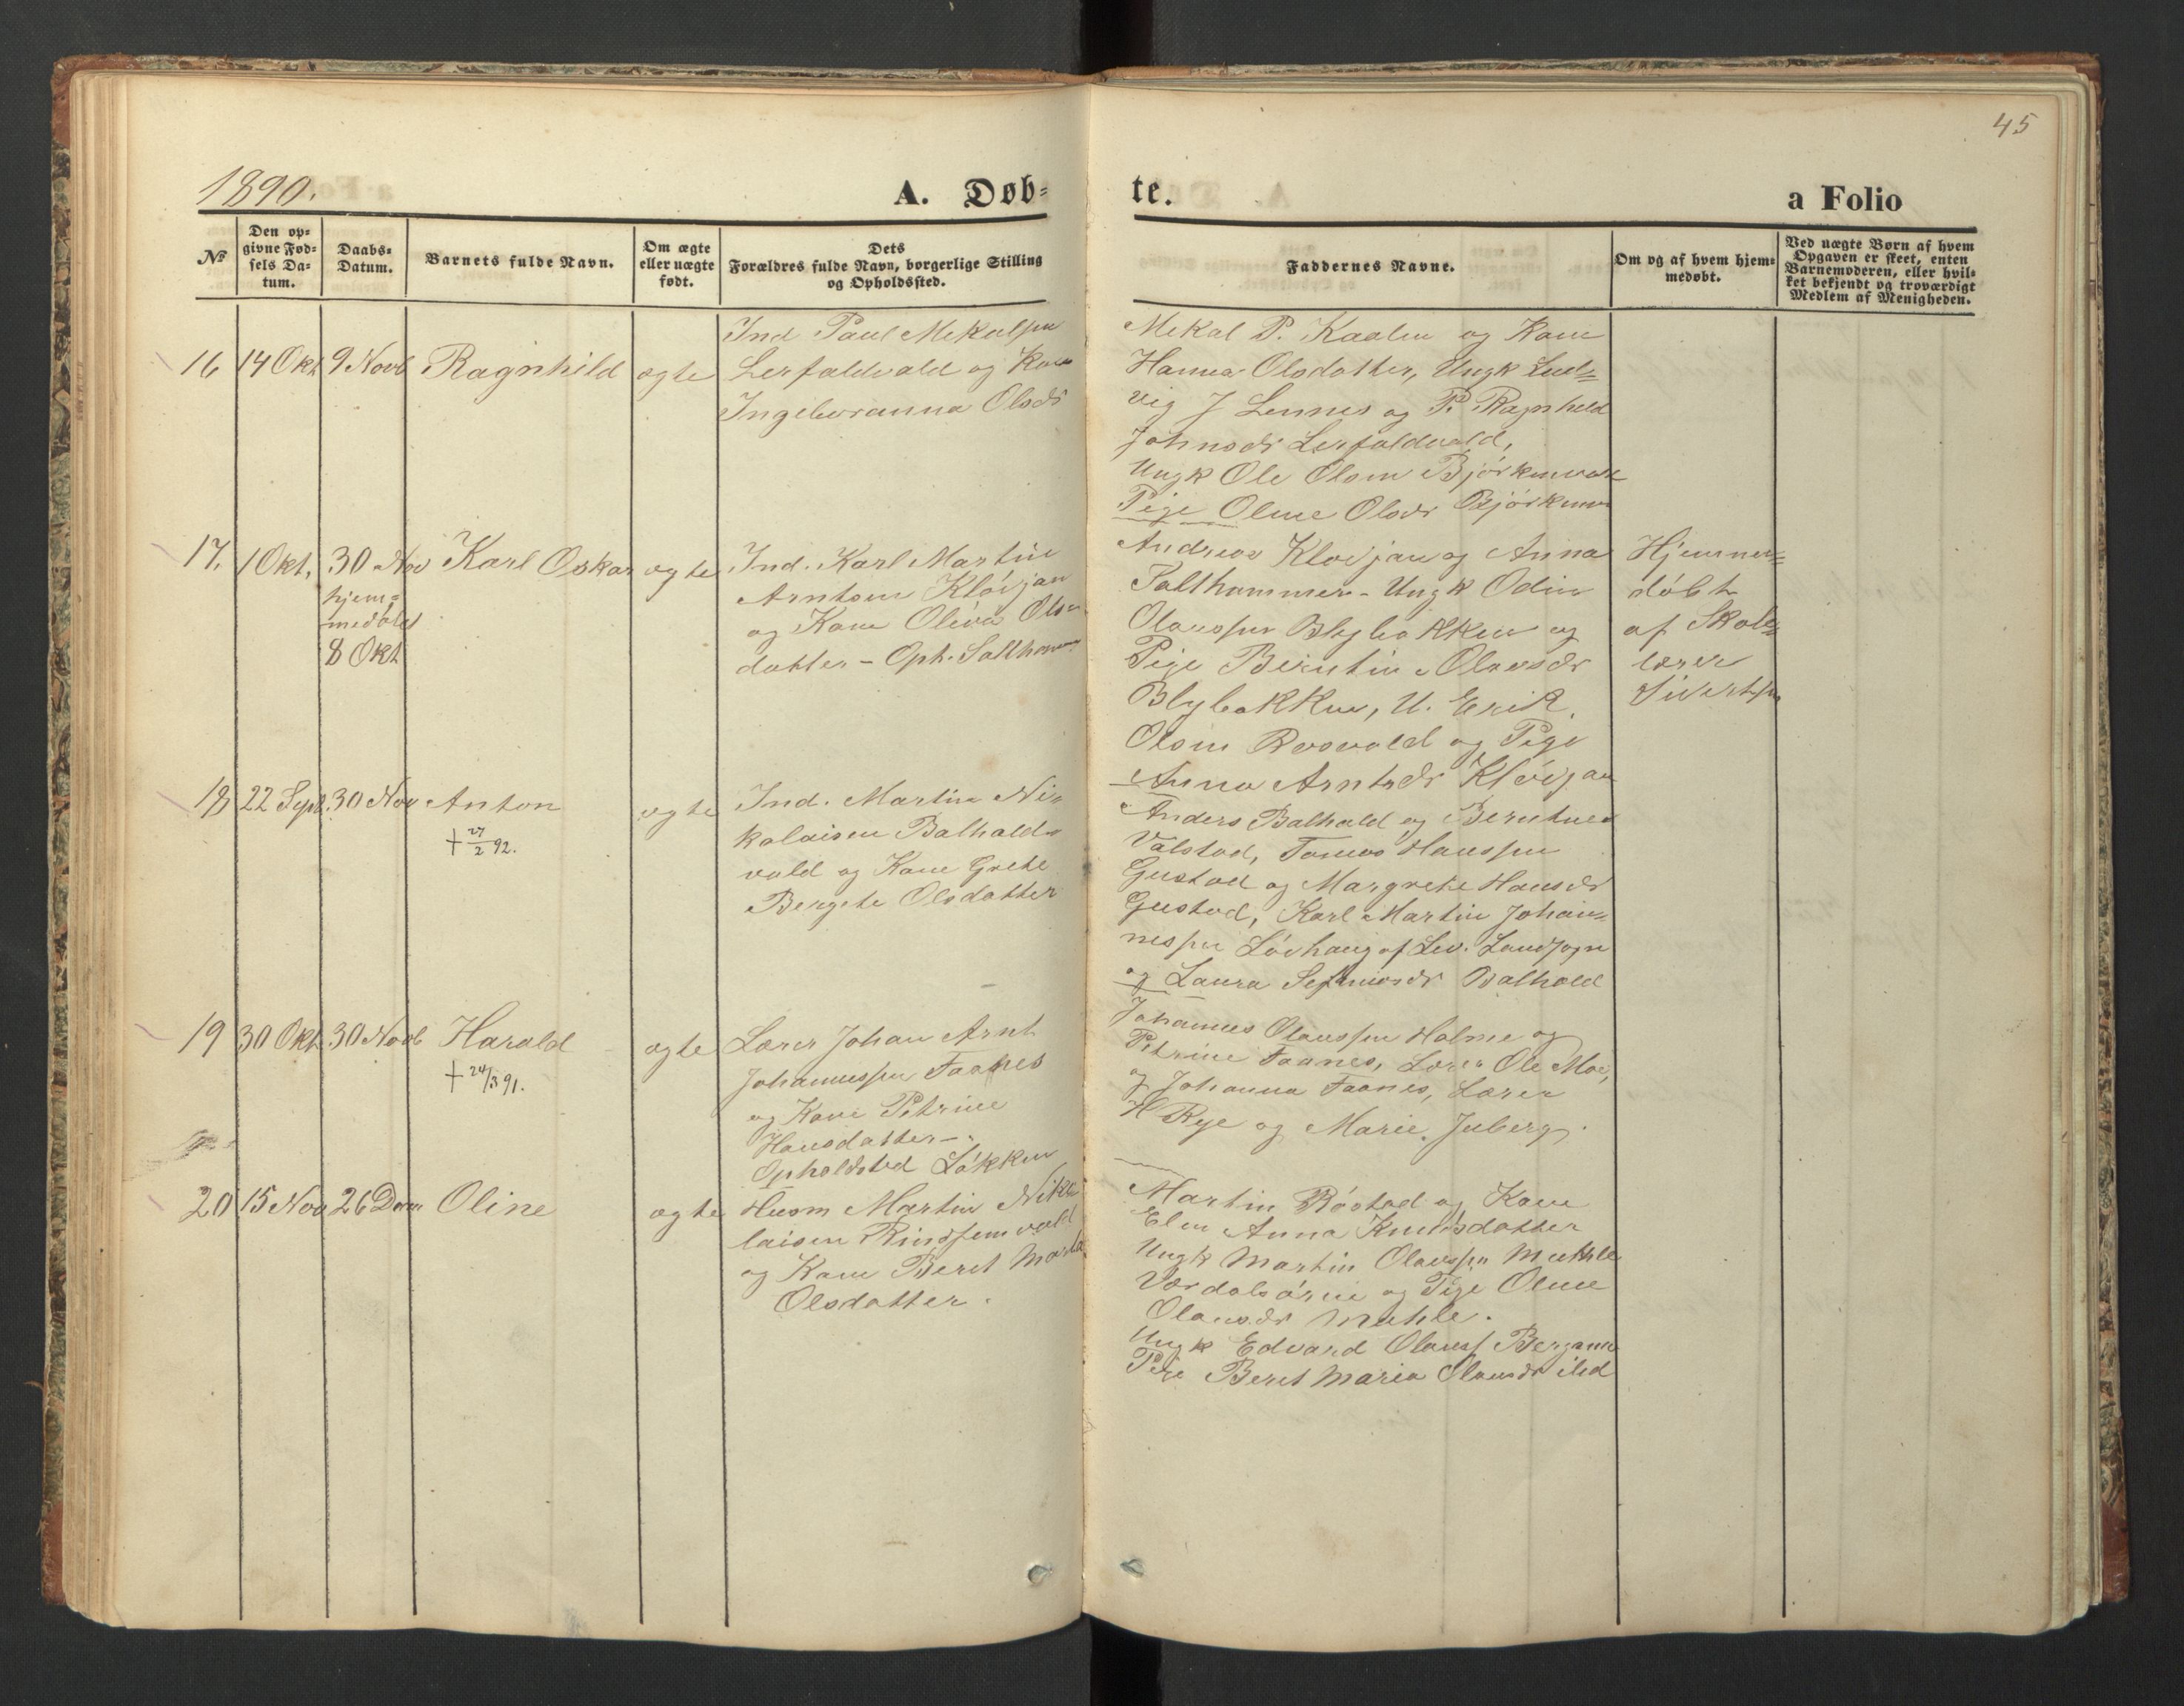 45
1890.
A. Døb-
te.
a Folio
№
Den op-
givne Fød-
sels Da-
tum.
Daabs-
Datum.
Barnets fulde Navn.
Om ægte
eller uægte
født.
Dets
Forældres fulde Navn, borgerlige Stilling
og Opholdssted.
Faddernes Navne.
Om og af hvem hjem-
medøbt.
Ved uægte Børn af hvem
Opgaven er skeet, enten
Barnemoderen, eller hvil-
ket bekjendt og troværdigt
Medlem af Menigheden.
16 14 Okt 9 Novb Ragnhild ægte
Ind Paul Mekalsen
Lerfaldvald og Kone
Ingeboranna Olsdr
Mekal P. Kaalen og Kone
Hanna Olsdatter, Ungk Lud-
vig J Lennes og P. Ragnhild
Johnsdr Lerfaldvald,
Ungk Ole Olsen Bjørkenvald
Pige Oline Olsdr Bjørkenv
17. 1 Okt, 30 Nov Karl Oskar ægte
hjem-
medøbt
8 Okt
Ind. Karl Martin
Arntsen Kløvjan
og Kone Oliva Ols-
datter - Oph. Salthammer
Andreas Kløvjan og Anna
Salthammer - Ungk Odin
Olaussen Blybakken og
Pige Berntine Olausdr
Blybakken, U. Erik
Olsen Rosvold og Pige
Anna Arntsdr Kløvjan
Hjemme-
døbt
af Skole-
lærer
Sivertsen
18 22 Sept. 30 Nov Anton ægte
† 27/2 92.
Ind. Martin Ni-
kolaisen Balhald-
vald og Kone Grete
Bergete Olsdatter
Anders Balhald og Berntine
Valstad, Tomas Hanssen
Gustad og Margrete Hansdr
Gustad, Karl Martin Johan-
nessen Løvhaug af Lev. Landsogn
og Laura Sefaniasdr Balhald
19 30 Okt 30 Novb Harald ægte
† 24/3 91.
Lærer Johan Arnt
Johannessen Faanes
og Kone Petrine
Hansdatter -
Opholdsted Løkken
Johannes Olaussen Holme og
Petrine Faanes, Lærer Ole Moe,
og Johanna Faanes, Lærer
H Rye og Marie Juberg.
20 15 Nov 26 Decm Oline ægte
Husm Martin Niko
laisen Rindsemvald
og Kone Beret Marta
Olsdatter.
Martin Røstad og Kone
Elen Anna Knutsdatter
Ungk Martin Olaussen Muhle
Værdalsøren og Pige Oline
Olausdr Muhle.
Ungk Edvard Olauss Bergsmv
Pige Beret Maria Olausdr ibd